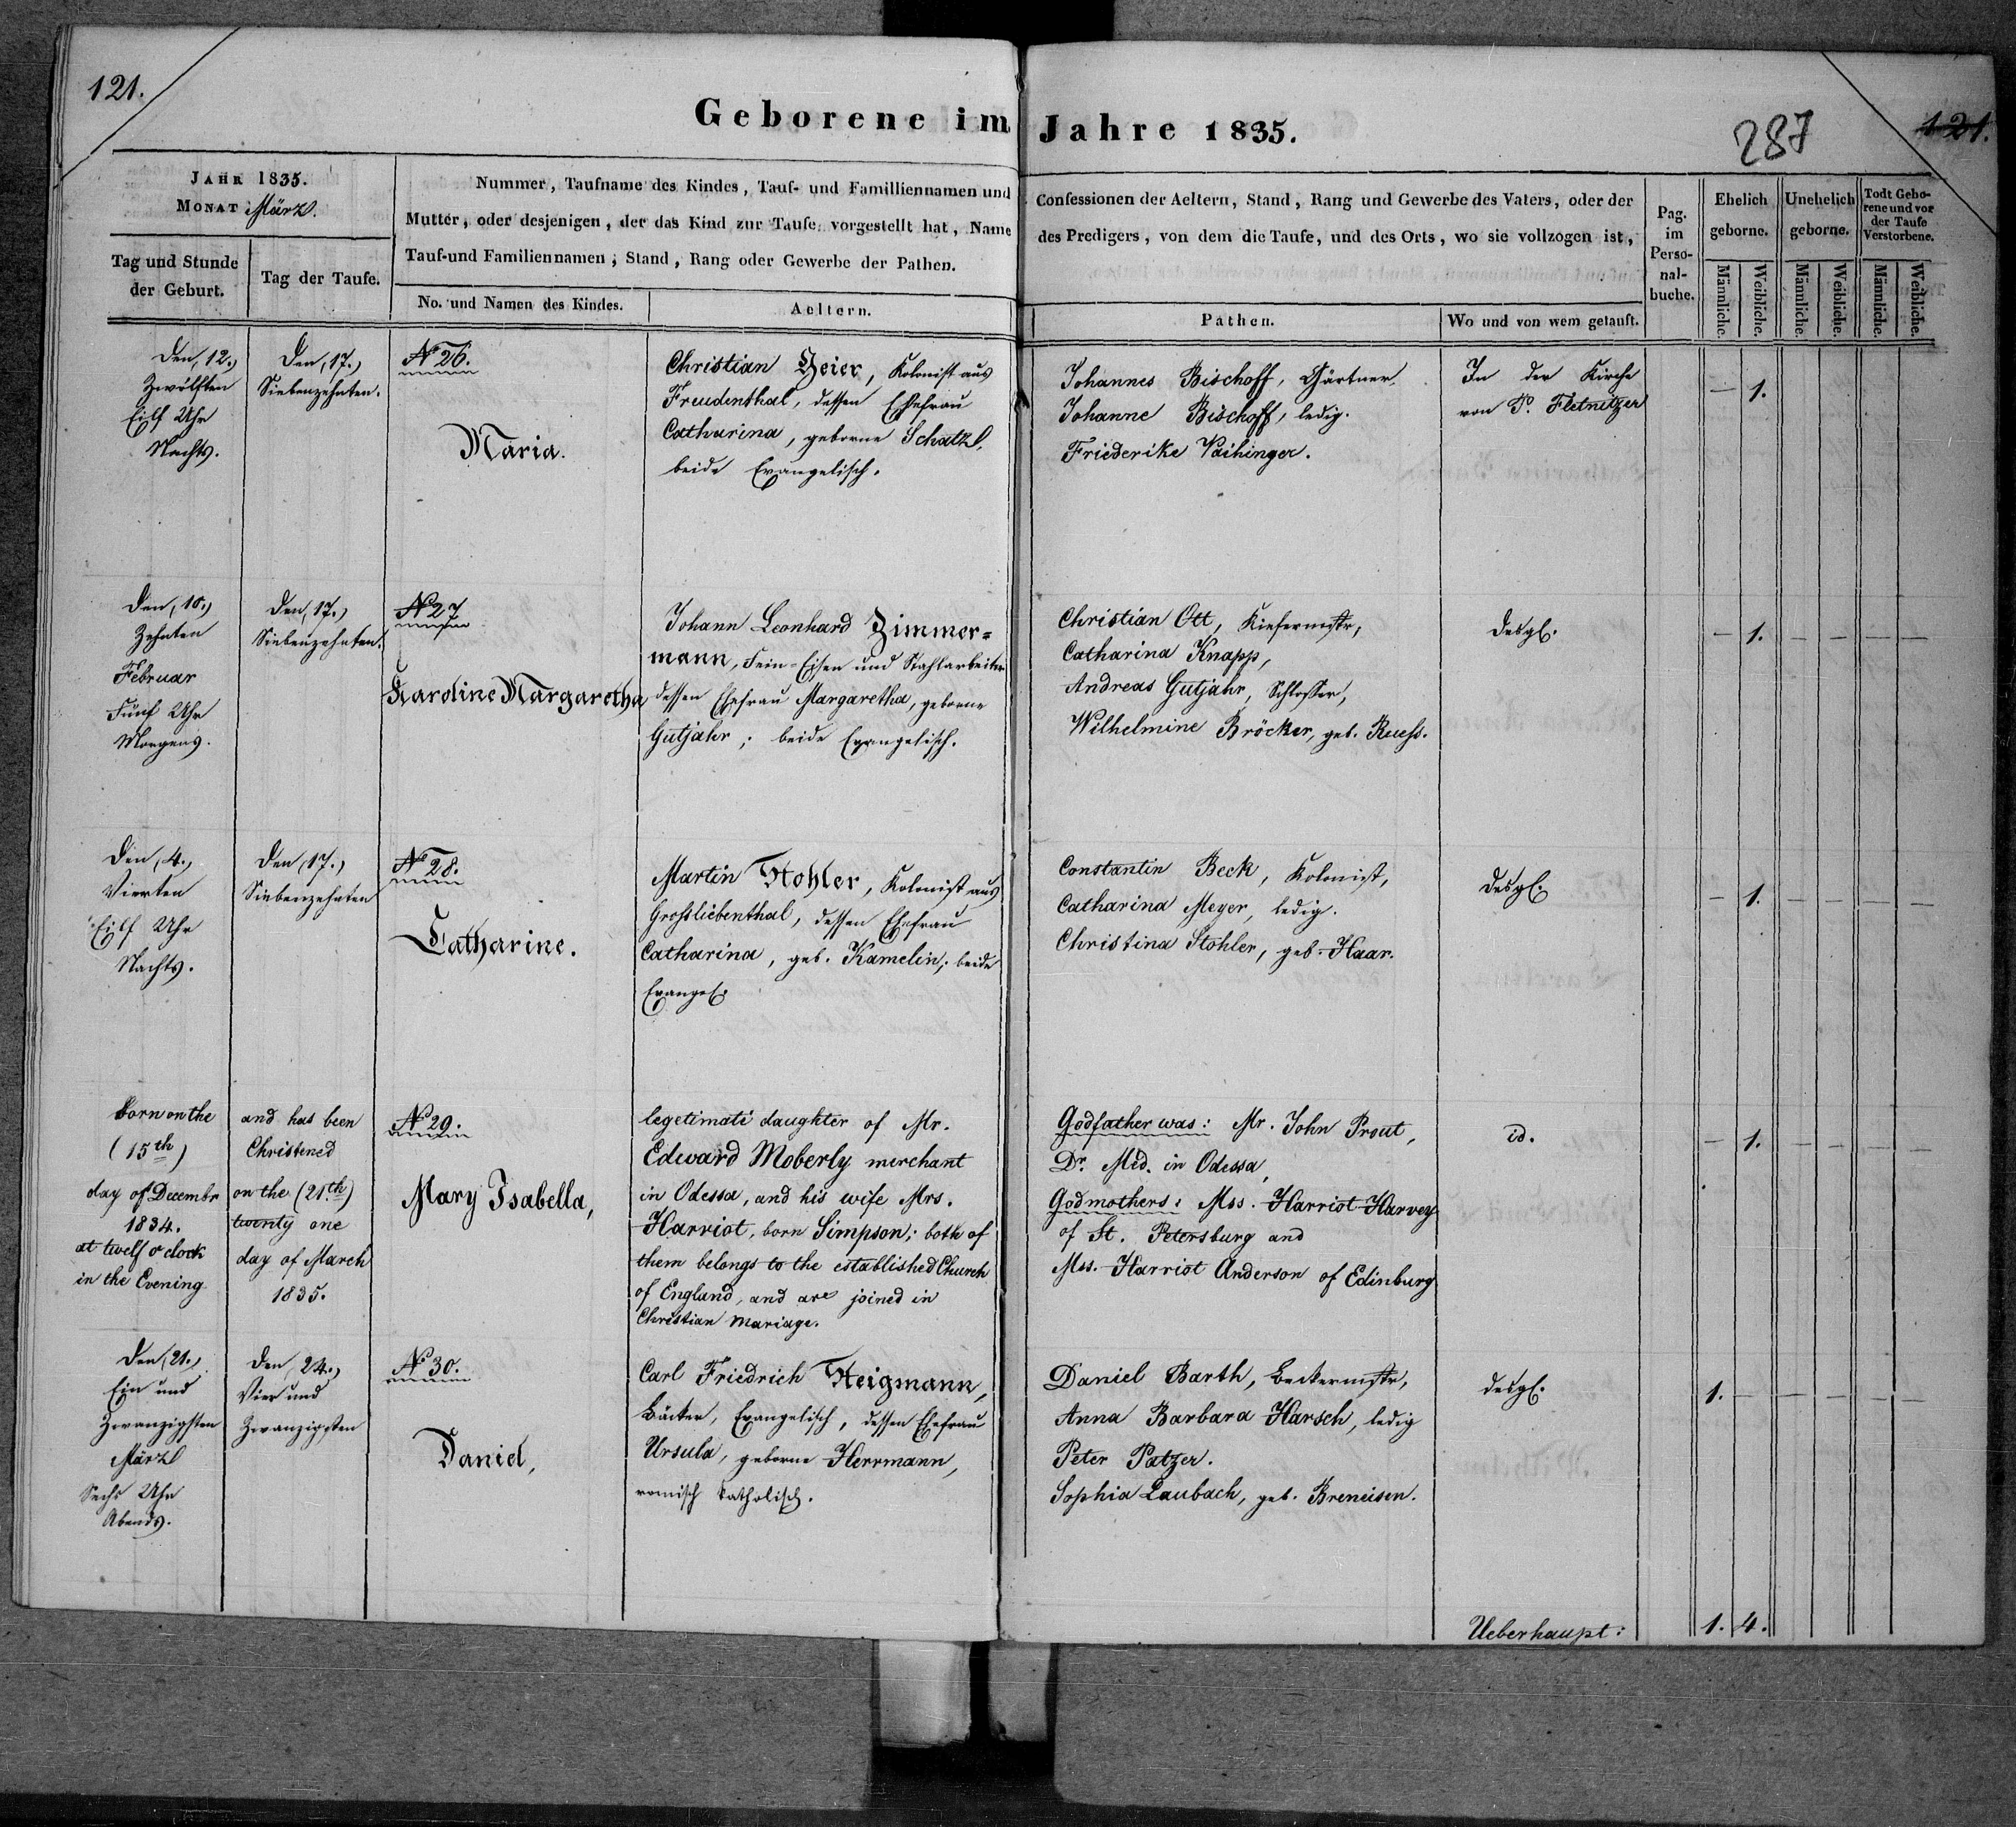 121.
Geborene im Jahre 1835.
287
121.
JAHR 1835.
MONAT März.
Tag und Stunde
der Geburt.
Tag der Taufe.
Nummer, Taufname des Kindes, Tauf- und Familliennamen und
Mutter, oder desjenigen, der das Kind zur Taufe vorgestellt hat, Name
Tauf-und Familiennamen, Stand, Rang oder Gewerbe der Pathen.
No. und Namen des Kindes.
Aeltern.
Confessionen der Aeltern, Stand, Rang und Gewerbe des Vaters, oder der
des Predigers, von dem die Taufe, und des Orts, wo sie vollzogen ist,
Pathen.
Wo und von wem getauft.
Pag.
im
Perso-
nal-
buche.
Ehelich
geborne.
Unehelich
geborne.
Todt Gebo-
rene und vor
der Taufe
Verstorbene.
Männliche.
Weibliche.
Männliche.
Weibliche.
Männliche.
Weibliche.
Den (12.)
Zwölften
Eilf Uhr
Nachts.
Den (17.)
Siebenzehnten.
No 26.
Maria.
Christian Zeier, Kolonist aus
Freudenthal, dessen Ehefrau
Catharina, geborne Schatz,
beide Evangelisch.
Johannes Bischoff, Gärtner,
Johanne Bischoff, ledig.
Friederike Vaihinger.
In der Kirche
von P. Fletnitzer
— 1.
Den (10.)
Zehnten
Februar
Fünf Uhr
Morgens.
Den (17.)
Siebenzehnten.
No 27
Karoline Margaretha
Johann Leonhard Zimmer=
mann, Fein-Eisen und Stahlarbeiter
dessen Ehefrau Margaretha, geborne
Gutjahr; beide Evangelisch.
Christian Ott, Kiefermstr,
Catharina Knapp,
Andreas Gutjahr, Schlosser,
Wilhelmine Bröcker, geb. Ruess.
desgl.
— 1. — — — —
Den (4.)
Vierten
Eilf Uhr
Nachts.
Den (17.)
Siebenzehnten
No 28.
Catharine.
Martin Stohler, Kolonist aus
Grossliebenthal, dessen Ehefrau
Catharina, geb. Kamelin; beide
Evangel.
Constantin Beck, Kolonist,
Catharina Meyer, ledig.
Christina Stohler, geb. Haar.
desgl.
— 1. — — — —
born on the
(15th)
day of Decembr
1834.
at twelf o'clock
in the Evening
and has been
Christened
on the (21.th)
twenty one
day of March
1835.
No 29.
Mary Isabella,
legetimate daughter of Mr.
Edward Moberly merchant
in Odessa, and his wife Mrs.
Harriot, born Simpson; both of
them belongs to the established Church
of England, and are joined in
Christian mariage.
Godfather was: Mr. John Prout,
Dr. Med. in Odessa,
Godmothers: Mss. Harriot Harvey
of St. Petersburg and
Mss. Harriot Anderson of Edinburg
id.
— 1. — — — —
Den (21.)
Ein und
Zwanzigsten
März
Sechs Uhr
Abends.
Den (24.)
Vier und
Zwanzigsten
No 30.
Daniel,
Carl Friedrich Steigmann,
Bäcker, Evangelisch, dessen Ehefrau
Ursula, geborne Herrmann,
romisch katholisch.
Daniel Barth, Beckermstr,
Anna Barbara Harsch, ledig
Peter Patzer.
Sophia Laubach, geb. Breneisen.
desgl.
1. — — — — —
Ueberhaupt: 1. 4.